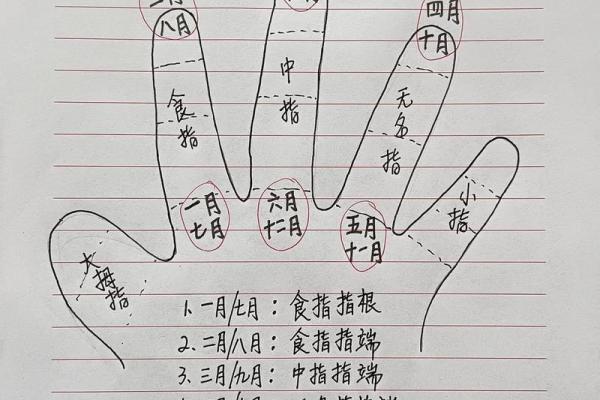 八月
四月
十月
食指
中指
无名指
小指
大拇指
一月
七月
六月
十二月
五月
十一月
1、一月/七月：食指指根
2、二月/八月：食指指端
3、三月/九月：中指指端